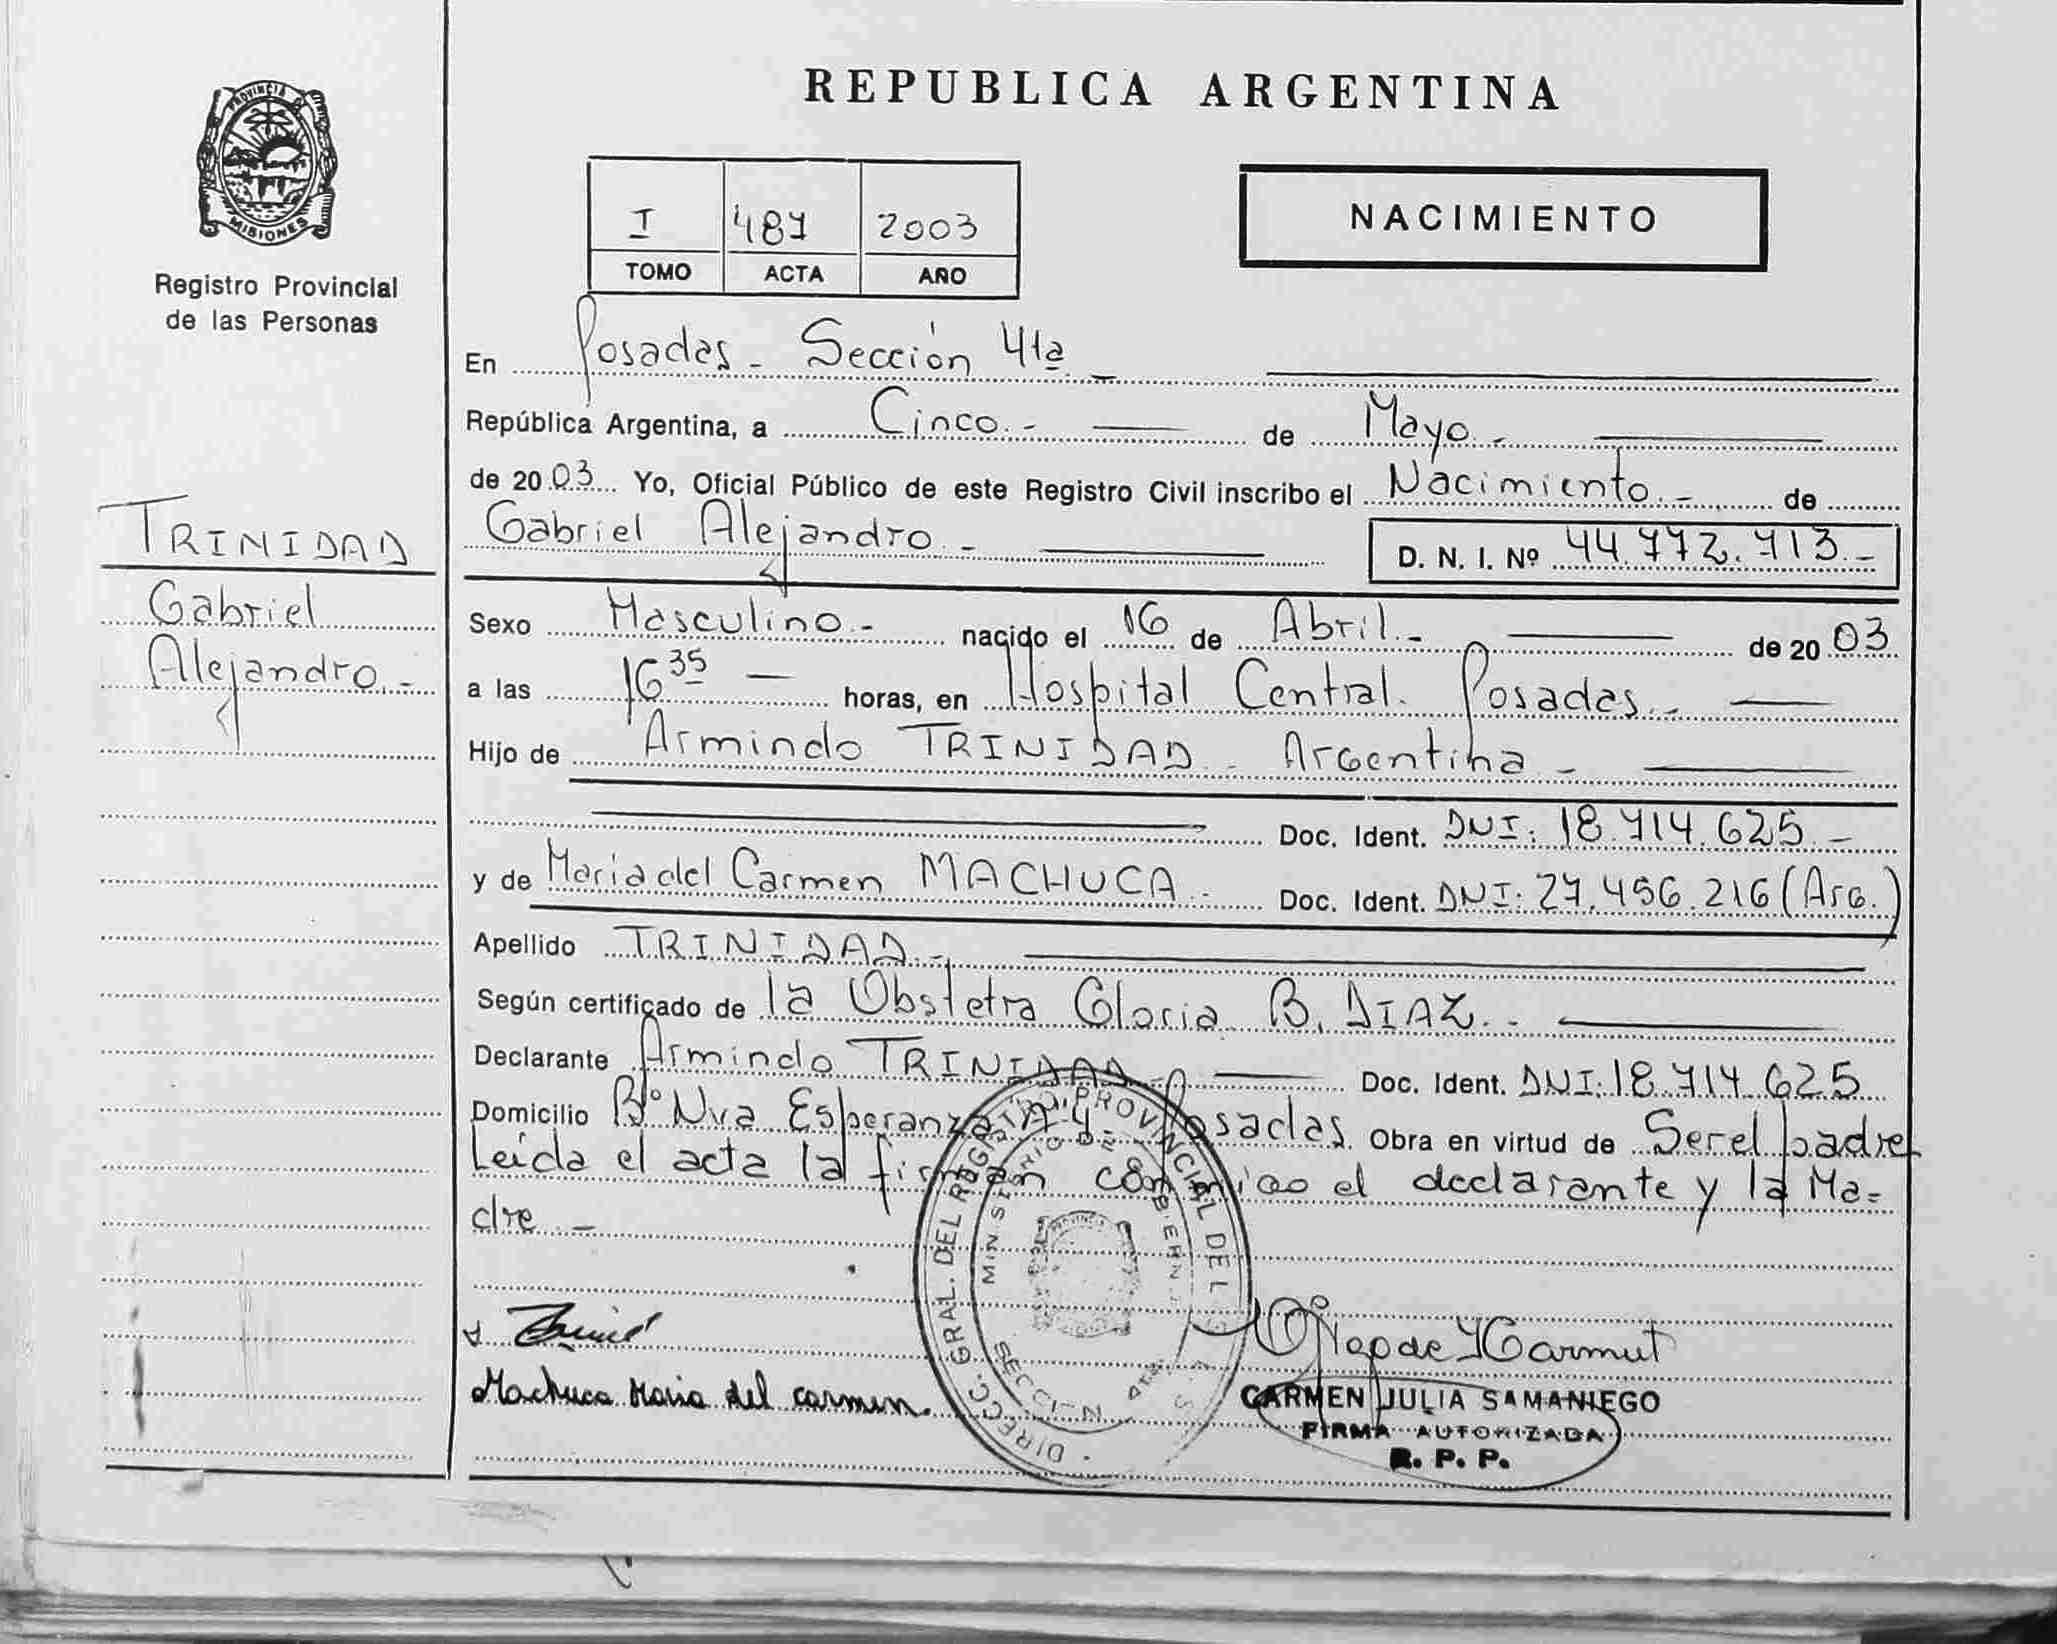 REPUBLICA ARGENTINA
PROVINCIA DE
MISIONES
Registro Provincial
de las Personas
I 487 2003
TOMO ACTA AÑO
NACIMIENTO
En Posadas - Sección 4ta -
República Argentina, a Cinco - de Mayo -
de 2003 Yo, Oficial Público de este Registro Civil inscribo el Nacimiento - de
Gabriel Alejandro - D. N. I. Nº 44.772.713.-
TRINIDAD
Gabriel
Alejandro.-
Sexo Masculino.- nacido el 16 de Abril.- de 2003
a las 16 35 horas, en Hospital Central. Posadas.-
Hijo de Armindo TRINIDAD - Argentina -
Doc. Ident. DNI: 18.714.625.-
y de Maria del Carmen MACHUCA.- Doc. Ident. DNI: 27.456.216 (Arg.)
Apellido TRINIDAD.-
Según certificado de la Obstetra Gloria B. DIAZ.-
Declarante Armindo TRINIDAD - Doc. Ident. DNI: 18.714.625
Domicilio Bº Nva Esperanza Posadas. Obra en virtud de Ser el padre
Leída el acta la firman conmigo el declarante y la Ma=
dre -
DIRECC. GRAL. DEL REGISTRO PROVINCIAL DE LAS
MINISTERIO DE GOBIERNO
SECCION 4ta
Machuca Maria del carmen.
CARMEN JULIA SAMANIEGO
FIRMA AUTORIZADA
R. P. P.